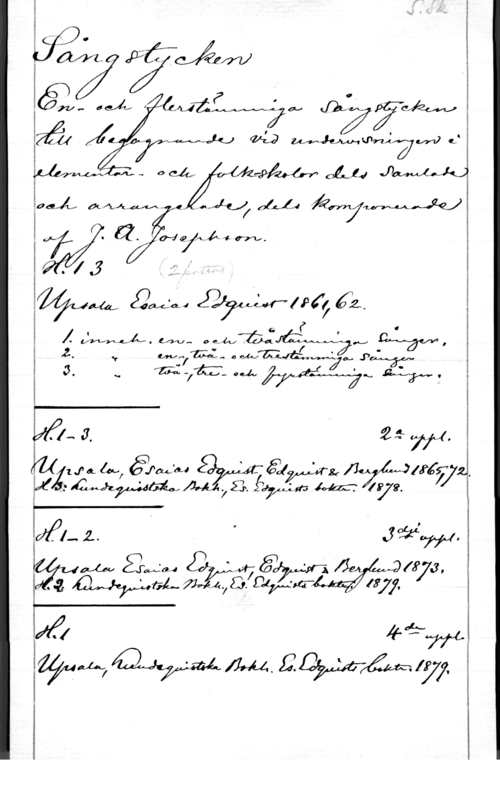 S. Sk
Sångstycken
En- och flerstämmiga Sångstycken
till begagnande vid undervisningen i
elementar- och folkskolor dels samlade
och arrangerade, dels komponerade
af J. A. Josephson.
H. 1 3 (2 portion)
Upsala Esaias Edquist 1861, 62.
1. inneh. en- och tvåstämmiga Sånger.
2. " en-, två- och trestämmiga Sånger
3. " två-, tre- och fyrstämmiga Sånger.
H. 1-3. 2a uppl.
Upsala, Esaias Edquist, Edquist & Berglund 1865, 72.
H. 3: Lundequistska Bokh., Es. Edquists boktr. 1878.
H. 1-2. 3dje uppl.
Upsala Esaias Edquist, Edquist & Berglund 1873,
H. 2 Lundequistska Bokh., Es. Edquists boktr. 1879.
H. 1 4de uppl.
Upsala, Lundequistska Bokh. Es. Edquists boktr. 1879.